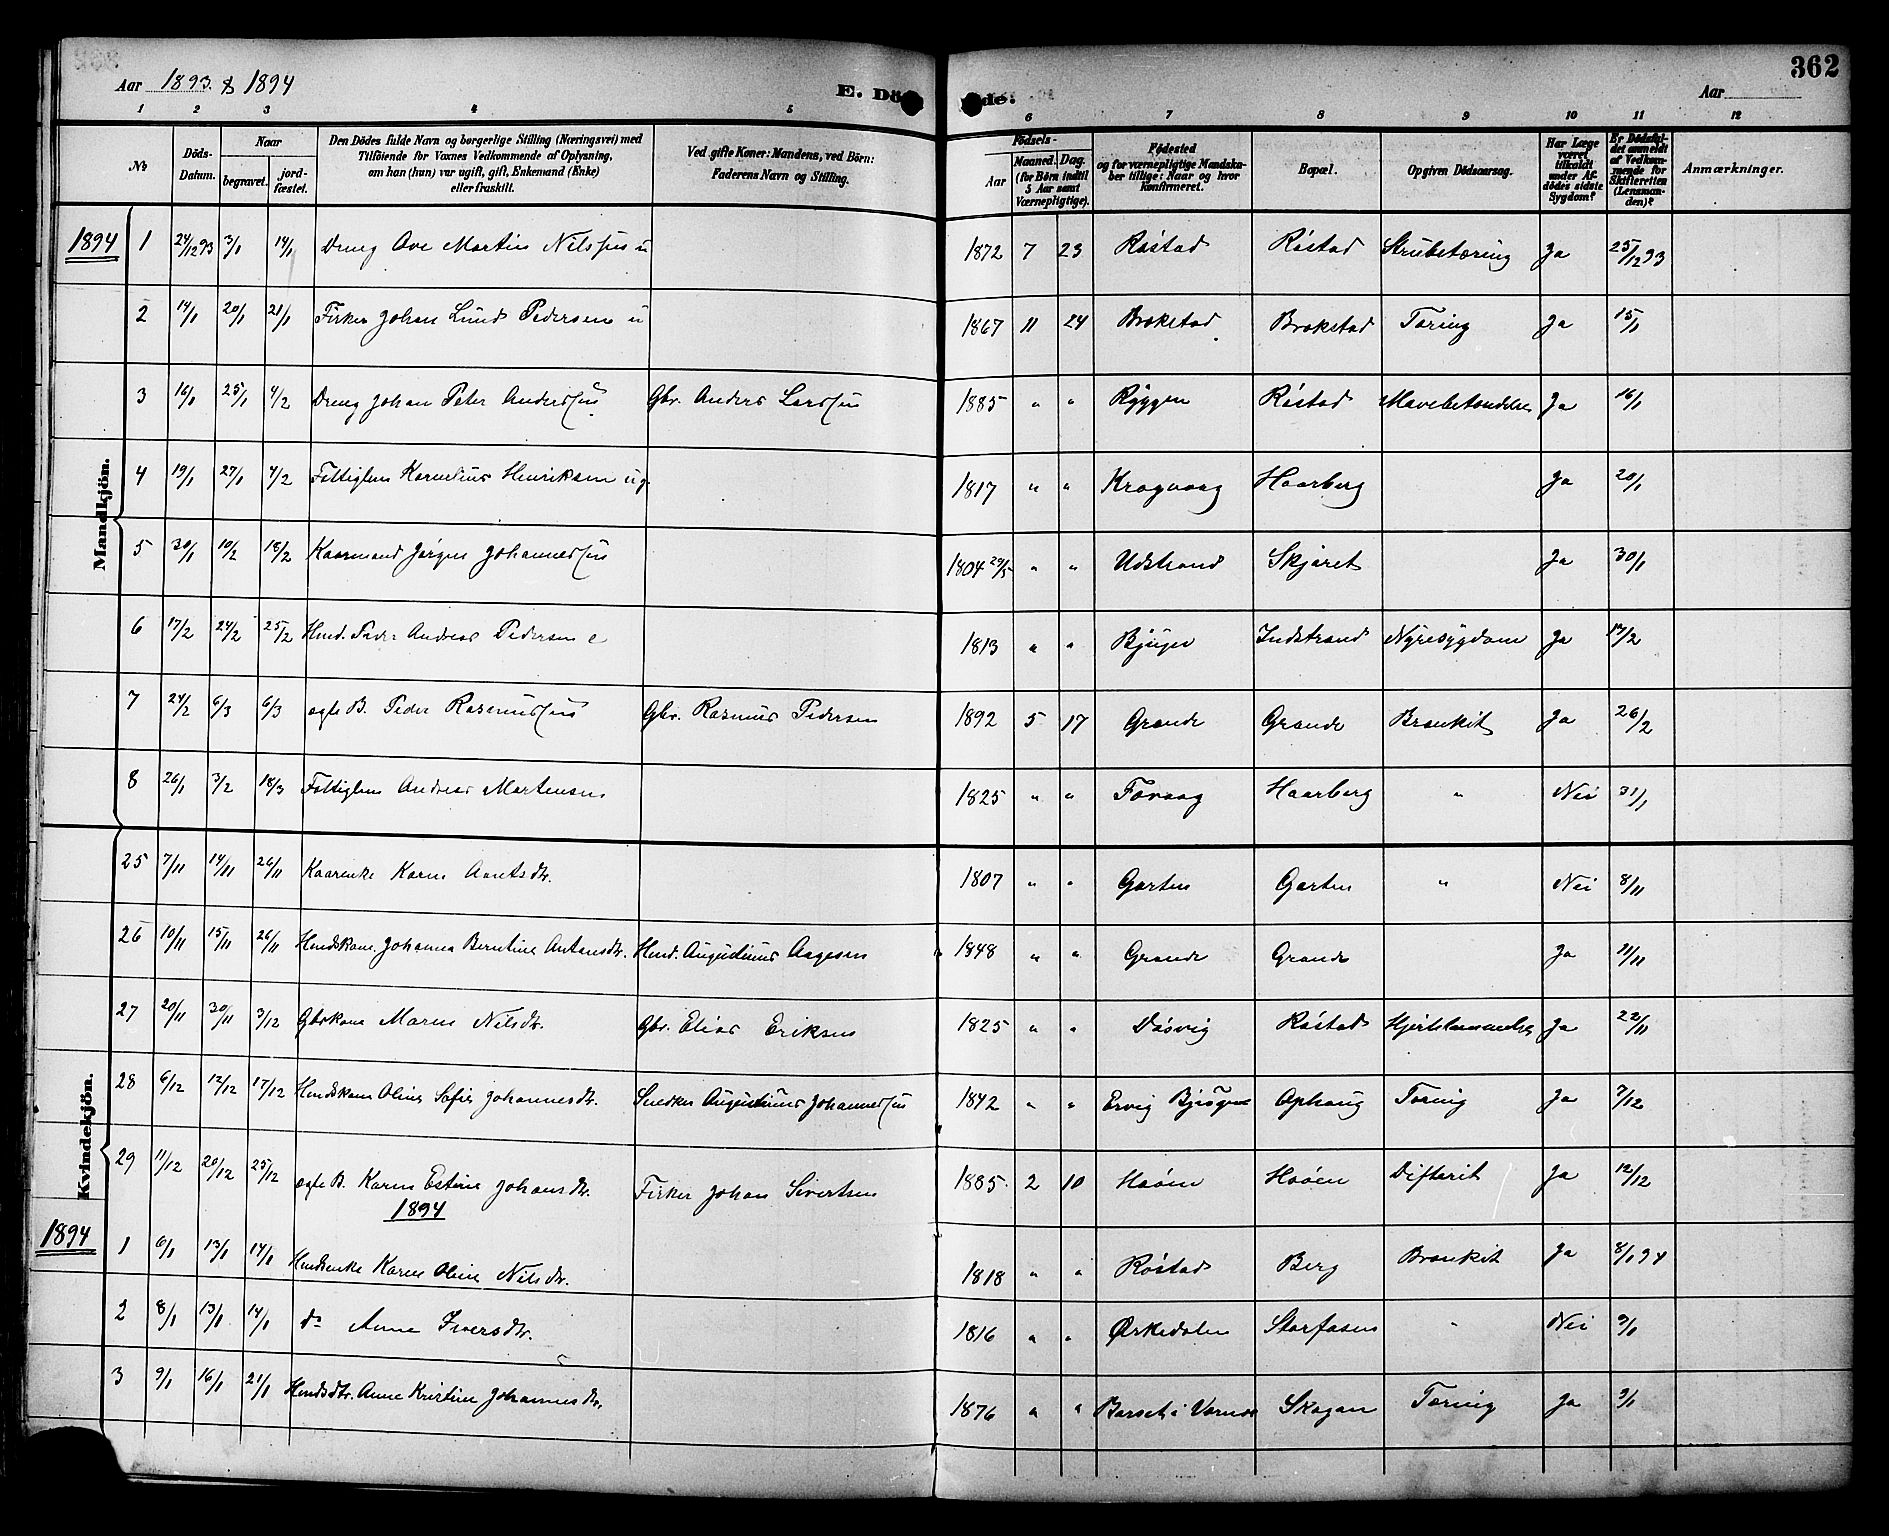 362
Aar 1893 & 1894
E. Döde.
Aar
1 2 3 4 5 6 7 8 9 10 11 12
№ | Döds-Datum. | Naar begravet. | jord-fæstet. | Den Dödes fulde Navn og borgerlige Stilling (Næringsvei) med Tilföiende for Voxnes Vedkommende af Oplysning, om han (hun) var ugift, gift, Enkemand (Enke) eller fraskilt. | Ved gifte Koner: Mandens, ved Börn: Faderens Navn og Stilling. | Födsels- Aar | Maaned. | Dag. (for Börn indtil 5 Aar samt Værnepligtige). | Födested og for værnepligtige Mandskaber tillige: Naar og hvor Konfirmeret. | Bopæl. | Opgiven Dödsaarsag. | Har Læge været tilkaldt under Afdödes sidste Sygdom? | Er Dödsfaldet anmeldt af Vedkommende for Skifteretten (Lensmanden)? | Anmærkninger.
Mandkjön.
1894 1 | 24/12 93 | 3/1 | 14/1 | Dreng Ove Martin Nilssen u | 1872 | 7 | 23 | Røstad | Røstad | Strubetæring | Ja | 25/12 93
2 | 14/1 | 20/1 | 21/1 | Fisker Johan Lund Pedersen u | 1867 | 11 | 24 | Brækstad | Brækstad | Tæring | Ja | 15/1
3 | 16/1 | 25/1 | 4/2 | Dreng Johan Peter Anderssen | Gbr. Anders Larssen | 1885 | " | " | Ryggen | Røstad | Mavebetændelse | Ja | 16/1
4 | 19/1 | 27/1 | 4/2 | Fattiglem Kornelius Henriksen ug | 1817 | " | " | Kragvaag | Haarberg | Ja | 20/1
5 | 30/1 | 10/2 | 18/2 | Kaarmand Jørgen Johannessen | 1804 29/5 | " | " | Udstrand | Skjæret | Ja | 30/1
6 | 17/2 | 24/2 | 25/2 | Hmd. Peder Andreas Pedersen e | 1813 | " | " | Bjugn | Indstrand | Nyresygdom | Ja | 17/2
7 | 24/2 | 6/3 | 6/3 | ægte B. Peder Rasmussen | Gbr. Rasmus Pedersen | 1892 | 5 | 17 | Grande | Grande | Bronkit | Ja | 26/2
8 | 26/1 | 3/2 | 18/3 | Fattiglem Andreas Mortensen | 1825 | " | " | Farvaag | Haarberg | " | Nei | 31/1
Kvindekjön.
25 | 7/11 | 14/11 | 26/11 | Kaarenke Karen Arntsdtr. | 1807 | " | " | Garten | Garten | " | Nei | 8/11
26 | 10/11 | 15/11 | 26/11 | Hmdskone Johanna Berntine Antonsdtr. | Hmd. Augustinus Aagesen | 1848 | " | " | Grande | Grande | Ja | 11/11
27 | 20/11 | 30/11 | 3/12 | Gbrkone Maren Nilsdtr. | Gbr. Elias Eriksen | 1825 | " | " | Døsvig | Røstad | Hjertelammelse | Ja | 22/11
28 | 6/12 | 12/12 | 17/12 | Hmdskone Oline Sofie Johannesdtr. | Snedker Augustinus Johannessen | 1842 | " | " | Ervig Bjugn | Ophaug | Tæring | Ja | 7/12
29 | 11/12 | 20/12 | 25/12 | ægte B. Karen Estine Johansdtr. | Fisker Johan Sivertsen | 1885 | 2 | 10 | Hoøen | Hoøen | Difterit | Ja | 12/12
1894
1894 1 | 6/1 | 13/1 | 14/1 | Hmdsenke Karen Oline Nilsdtr. | 1818 | " | " | Røstad | Berg | Bronkit | Ja | 8/1 94
2 | 8/1 | 13/1 | 14/1 | do Anne Iversdtr. | 1816 | " | " | Ørkedalen | Storfosen | " | Nei | 9/1
3 | 9/1 | 16/1 | 21/1 | Hmdsdtr. Anne Kristine Johannesdtr. | 1876 | " | " | Borset i Værnes | Skagan | Tæring | Ja | 9/1